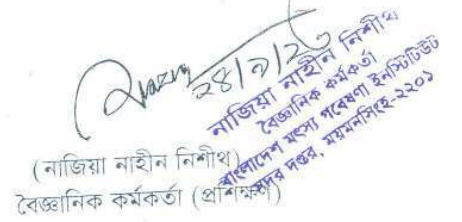 ২৪/৭/২৩
নাজিয়া নাহীন নিশীথ
বৈজ্ঞানিক কর্মকর্তা
বাংলাদেশ মৎস্য গবেষণা ইনস্টিটিউট
সদর দপ্তর, ময়মনসিংহ-২২০১
(নাজিয়া নাহীন নিশীথ)
বৈজ্ঞানিক কর্মকর্তা (প্রশিক্ষণ)